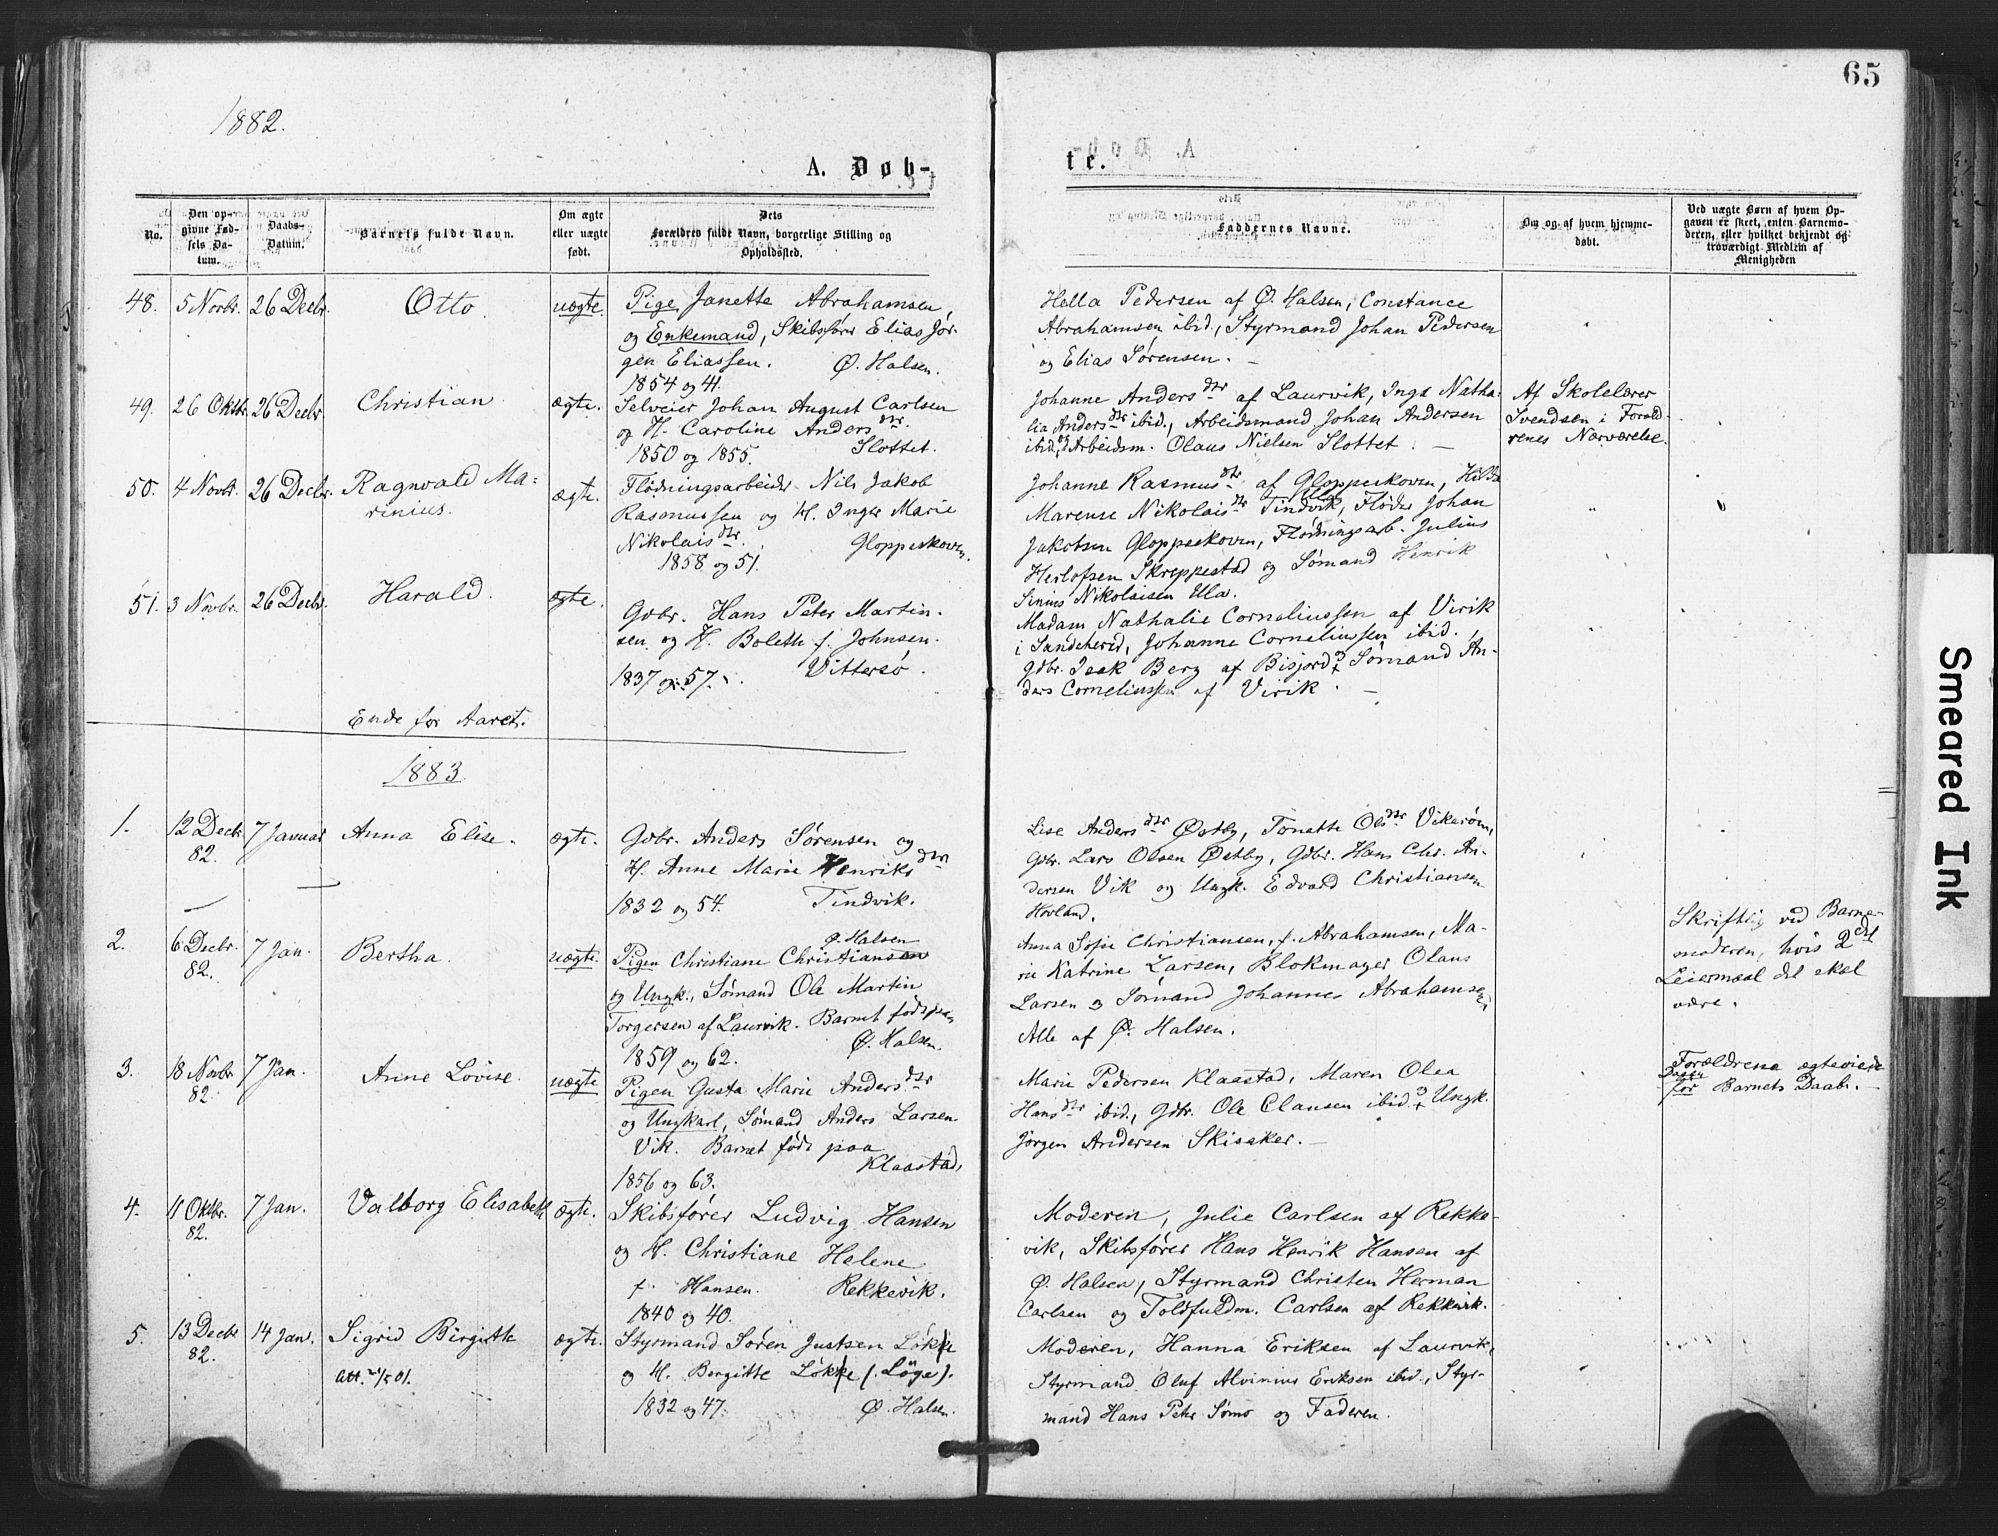 65
1882.
A. Døb-
te.
No.
Den op-
givne Fød-
sels Da-
tum.
Daabs-
Datum.
Barnets fulde Navn.
Om ægte
eller uægte
født.
Dets
Forældres fulde Navn, borgerlige Stilling og
Opholdssted.
Faddernes Navne.
Om og af hvem hjemme-
døbt.
Ved uægte Børn af hvem Op-
gaven er skeet, enten Barnemo-
deren, eller hvilket bekjendt og
troværdigt Medlem af
Menigheden
48. 5 Novbr. 26 Decbr. Otto uægte.
Pige Janette Abrahamsen
og Enkemand, Skibsfører Elias Jør-
gen Eliassen. Ø. Halsen.
1854 og 41.
Hella Pedersen af Ø. Halsen, Constance
Abrahamsen ibid., Styrmand Johan Pedersen
og Elias Sørensen. —
49. 26 Oktbr. 26 Decbr. Christian ægte.
Selveier Johan August Carlsen
og H. Caroline Andersdtr.
1850 og 1855. Slottet.
Johanne Andersdtr af Laurvik, Inga Natha-
lia Andersdtr ibid., Arbeidsmand Johan Andersen
ibid. og Arbeidsm. Olaus Nielsen Slottet. —
Af Skolelærer
Svendsen i Foræld-
renes Nærværelse.
50. 4 Novbr. 26 Decbr. Ragnvald Ma-
rinius. ægte.
Flødningsarbeider Nils Jakob
Rasmussen og H. Inger Marie
Nikolaisdtr.
1858 og 51. Gloppeskoven.
Johanne Rasmusdtr af Gloppeskoven, Hilda
Marense Nikolaisdtr Tindvik, Fløder Johan
Jakobsen Gloppeskoven, Flødningsarb. Julius
Herlofsen Skreppestad og Sømand Henrik
Sinius Nikolaisen Ula.
51. 3 Novbr. 26 Decbr. Harald. ægte.
Gdbr. Hans Peter Martin-
sen og H. Bolette f. Johnsen.
1837 og 57. Vittersø.
Madam Nathalie Corneliussen af Virik
i Sandeherred, Johanne Corneliussen ibid.
Gdbr. Isak Berg af Bisjord & Sømand An-
ders Corneliussen af Virik. —
Ende for Aaret.
1883.
1. 12 Decbr. 7 Januar Anna Elise. ægte.
82.
Gdbr. Anders Sørensen og
H. Anne Marie Henriksdtr
1832 og 54. Tindvik.
Lise Andersdtr Østby, Tonette Olsdtr Vikerøen,
Gdbr. Lars Olsen Østby, Gdbr. Hans Chr. An-
dersen Vik og Ungk. Edvard Christiansen
Hovland.
2. 6 Decbr. 7 Jan. Bertha. uægte.
82.
Ø. Halsen
Pigen Christiane Christiansen
og Ungk., Sømand Ole Martin
Torgersen af Laurvik. Barnet født paa
Ø. Halsen.
1859 og 62.
Anna Sofie Christiansen, f. Abrahamsen, Ma-
rie Katrine Larsen, Blokmager Olaus
Larsen og Sømand Johannes Abrahamsen,
Alle af Ø. Halsen.
Skriftlig ved Barne-
moderen, hvis 2det
Leiermaal det skal
være.
3. 18 Novbr 7 Jan. Anne Lovise. uægte
82.
Pigen Gusta Marie Andersdtr
og Ungkarl, Sømand Anders Larsen
Vik. Barnet født paa
Klaastad.
1856 og 63.
Marie Pedersen Klaastad, Maren Olea
Hansdtr ibid., Gdbr. Ole Clausen ibid. & Ungk.
Jørgen Andersen Skisaker. —
Forældrene ægteviede
før Barnets Daab. —
4. 11 Oktbr. 7 Jan. Valborg Elisabeth ægte.
82.
Skibsfører Ludvig Hansen
og H. Christiane Helene
f. Hansen. Rekkevik.
1840 og 40.
Moderen, Julie Carlsen af Rekke-
vik, Skibsfører Hans Henrik Hansen af
Ø. Halsen, Styrmand Christen Herman
Carlsen og Toldfuldm. Carlsen af Rekkevik.
5. 13 Decbr 14 Jan. Sigrid Birgitte ægte.
82.
Att. 21/5 01.
Styrmand Søren Justsen Løkke
og H. Bergitte Løkke f. Løge).
1832 og 47. Ø. Halsen.
Moderen, Hanna Eriksen af Laurvik,
Styrmand Oluf Alvinius Eriksen ibid., Styr-
mand Hans Peter Sømo og Faderen.
Smeared Ink